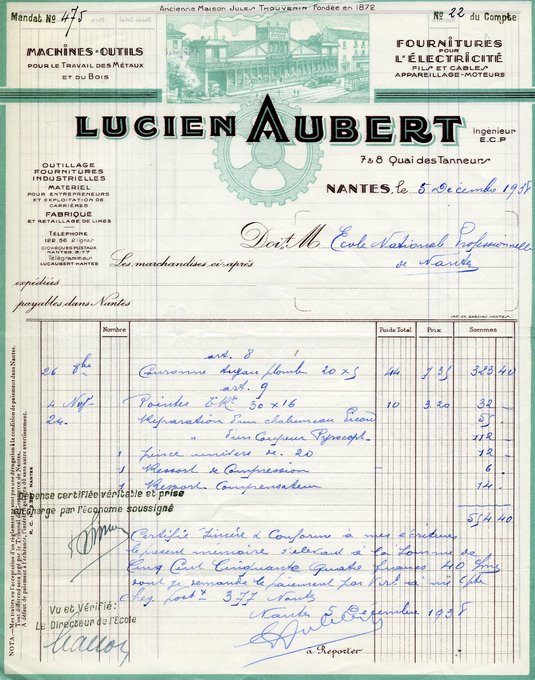 Ancienne Maison Jules Thouvenin Fondée en 1872
Mandat No 475
No 22 du Compte
MACHINES-OUTILS
POUR LE TRAVAIL DES MÉTAUX
ET DU BOIS
FOURNITURES
POUR
L'ÉLECTRICITÉ
FILS ET CABLES
APPAREILLAGE-MOTEURS
LUCIEN AUBERT
Ingénieur
E.C.P
7 & 8 Quai des Tanneurs
NANTES, le 5 Décembre 1938
OUTILLAGE
FOURNITURES
INDUSTRIELLES
MATERIEL
POUR ENTREPRENEURS
ET EXPLOITATION DE
CARRIÈRES
FABRIQUE
ET RETAILLAGE DE LIMES
TÉLÉPHONE
122.56 2 lignes
CHÈQUES POSTAUX
NANTES 3.77
Télégrammes
LUCAUBERT-NANTES
Doit M Ecole Nationale Professionnelle
de Nantes
Les marchandises ci-après
expédiées
payables dans Nantes
IMP. CH. NANTES
Nombre Poids Total Prix Sommes
art. 8
26 Couronne plomb 20 x 5 44 7 35 323 40
art. 9
4 Nov Pointes 30 x 16 10 3.20 32 -
24 Réparation d'un chalumeau 55 -
" d'un Coupeur Pyrocopt 112 -
1 pince 20 12 -
1 Ressort de Compression 6 -
1 Ressort Compensateur 14 -
554 40
Dépense certifiée véritable et prise
en charge par l'économe soussigné
Certifié Sincère & Conforme à mes écritures
le présent mémoire s'élevant à la somme de
Cinq Cent Cinquante Quatre francs 40
dont je demande le paiement par à m/ Cpte
Cheq. post. 377 Nantes
Nantes 5 Décembre 1938
Vu et Vérifié:
Le Directeur de l'Ecole
à Reporter
R. C. NANTES
NOTA. — Mes traites ou l'acceptation d'un règlement ne sont pas une dérogation à la condition de paiement dans Nantes.
Tout différend sera jugé par le Tribunal de Commerce de Nantes.
A défaut de paiement à l'échéance, l'intérêt